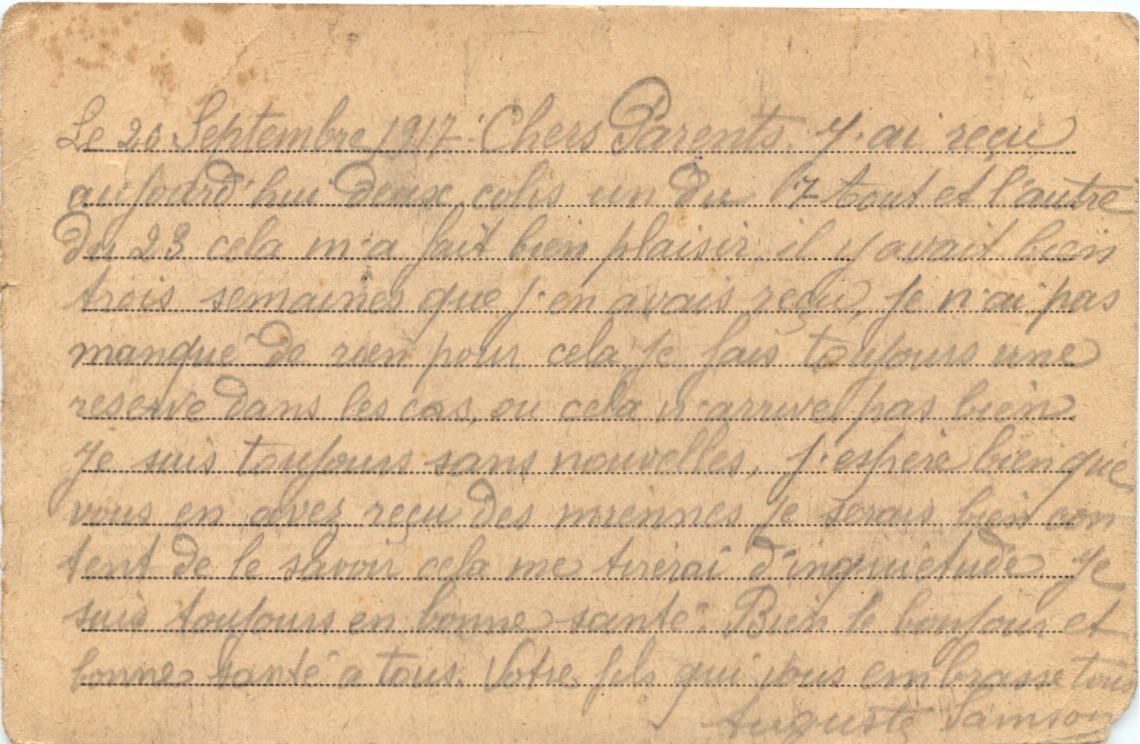 Le 20 Septembre 1917. Chers Parents. J'ai reçu
aujourd'hui deux colis un du 17 aout et l'autre
du 23 cela m'a fait bien plaisir, il y avait bien
trois semaines que j'en avais reçu, je n'ai pas
manqué de rien pour cela je fais toujours une
reserve dans les cas, ou cela n'arrive pas bien
Je suis toujours sans nouvelles, j'espère bien que
vous en avez reçu des miennes je serais bien con
tent de le savoir cela me tirerai d'inquiétude Je
suis toujours en bonne santé. Bien le bonjour et
bonne santé a tous. Votre fils qui vous embrasse tous
Auguste Samson